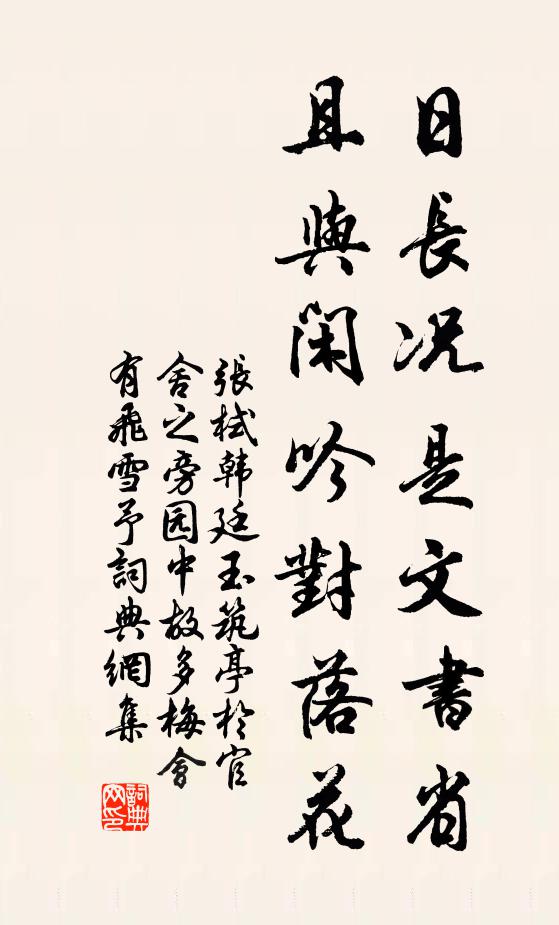 日長况是文書省
且與閑吟對落花
張栻韩廷玉筑亭於官
舍之旁园中故多梅會
有飛雪予詞典網集
詞典網印